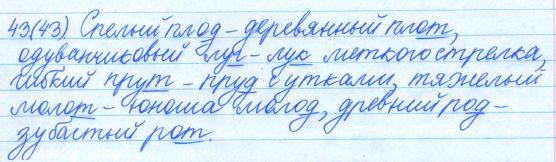 43(43). Спелый плод – деревянный плот,
одуванчиковый луг – лук меткого стрелка,
гибкий прут – пруд с утками, тяжелый
молот – юноша молод, древний род –
зубастый рот.